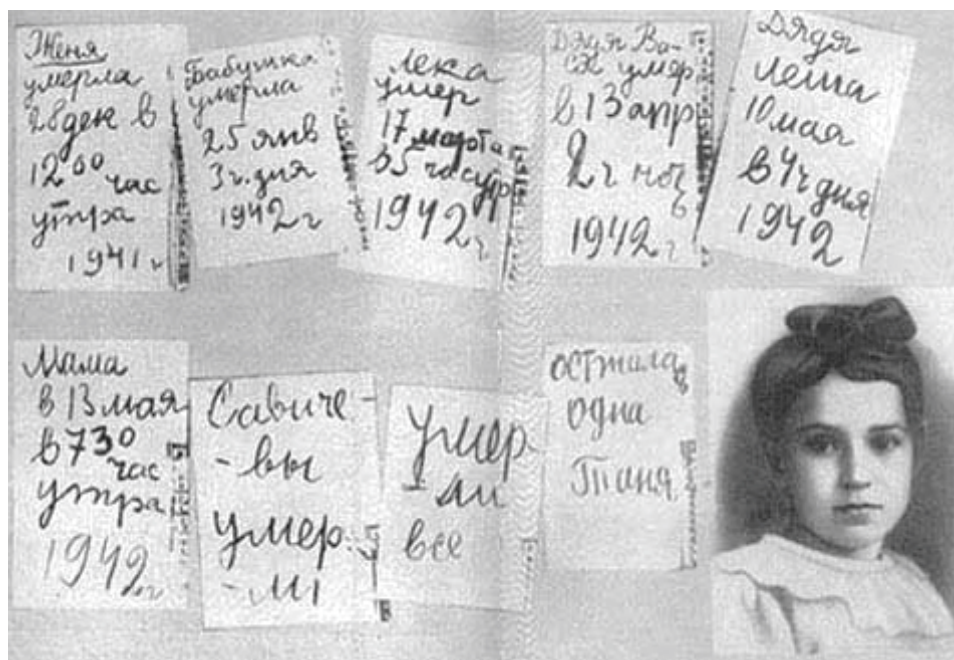 Женя
умерла
28 дек в
12 00 час
утра
1941 г
Бабушка
умерла
25 янв
3 ч. дня
1942 г
Лека
умер
17 марта
в 5 час утр
1942 г
Дядя Ва-
ся умер
в 13 апр
2 ч ночь
1942 г
Дядя
Леша
10 мая
в 4 ч дня
1942
Мама
в 13 мая
в 7 30
час
утра
1942 г
Савиче-
-вы
умер.
-ли
Умер
-ли
все
Осталась
одна
Таня